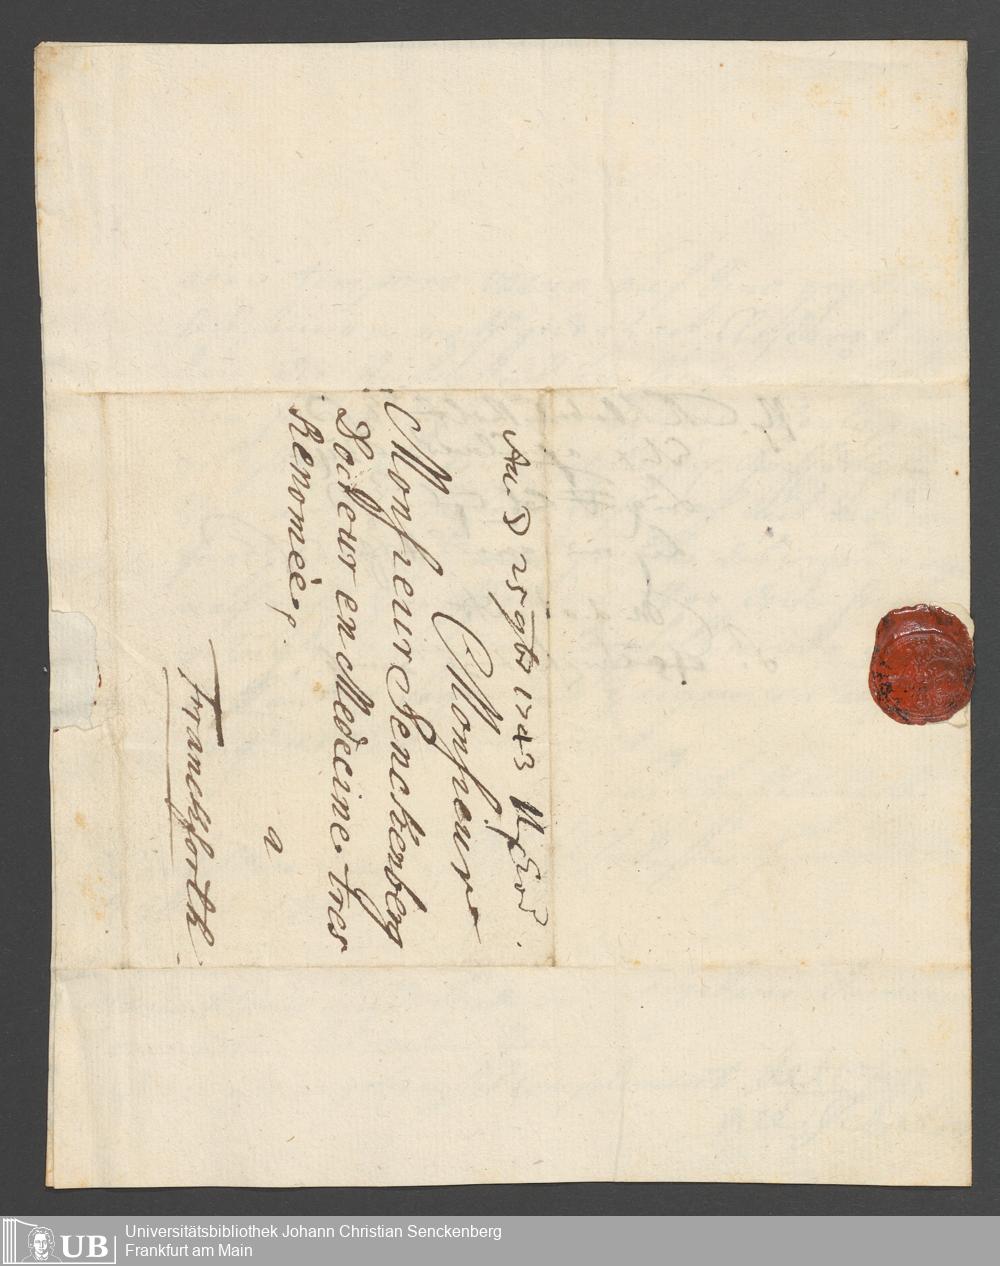 25 9br 1743
Monsieur
Monsieur Senckenberg
Docteur en Medecine tres
Renomée,
a
Franckforth
UB
Universitätsbibliothek Johann Christian Senckenberg
Frankfurt am Main